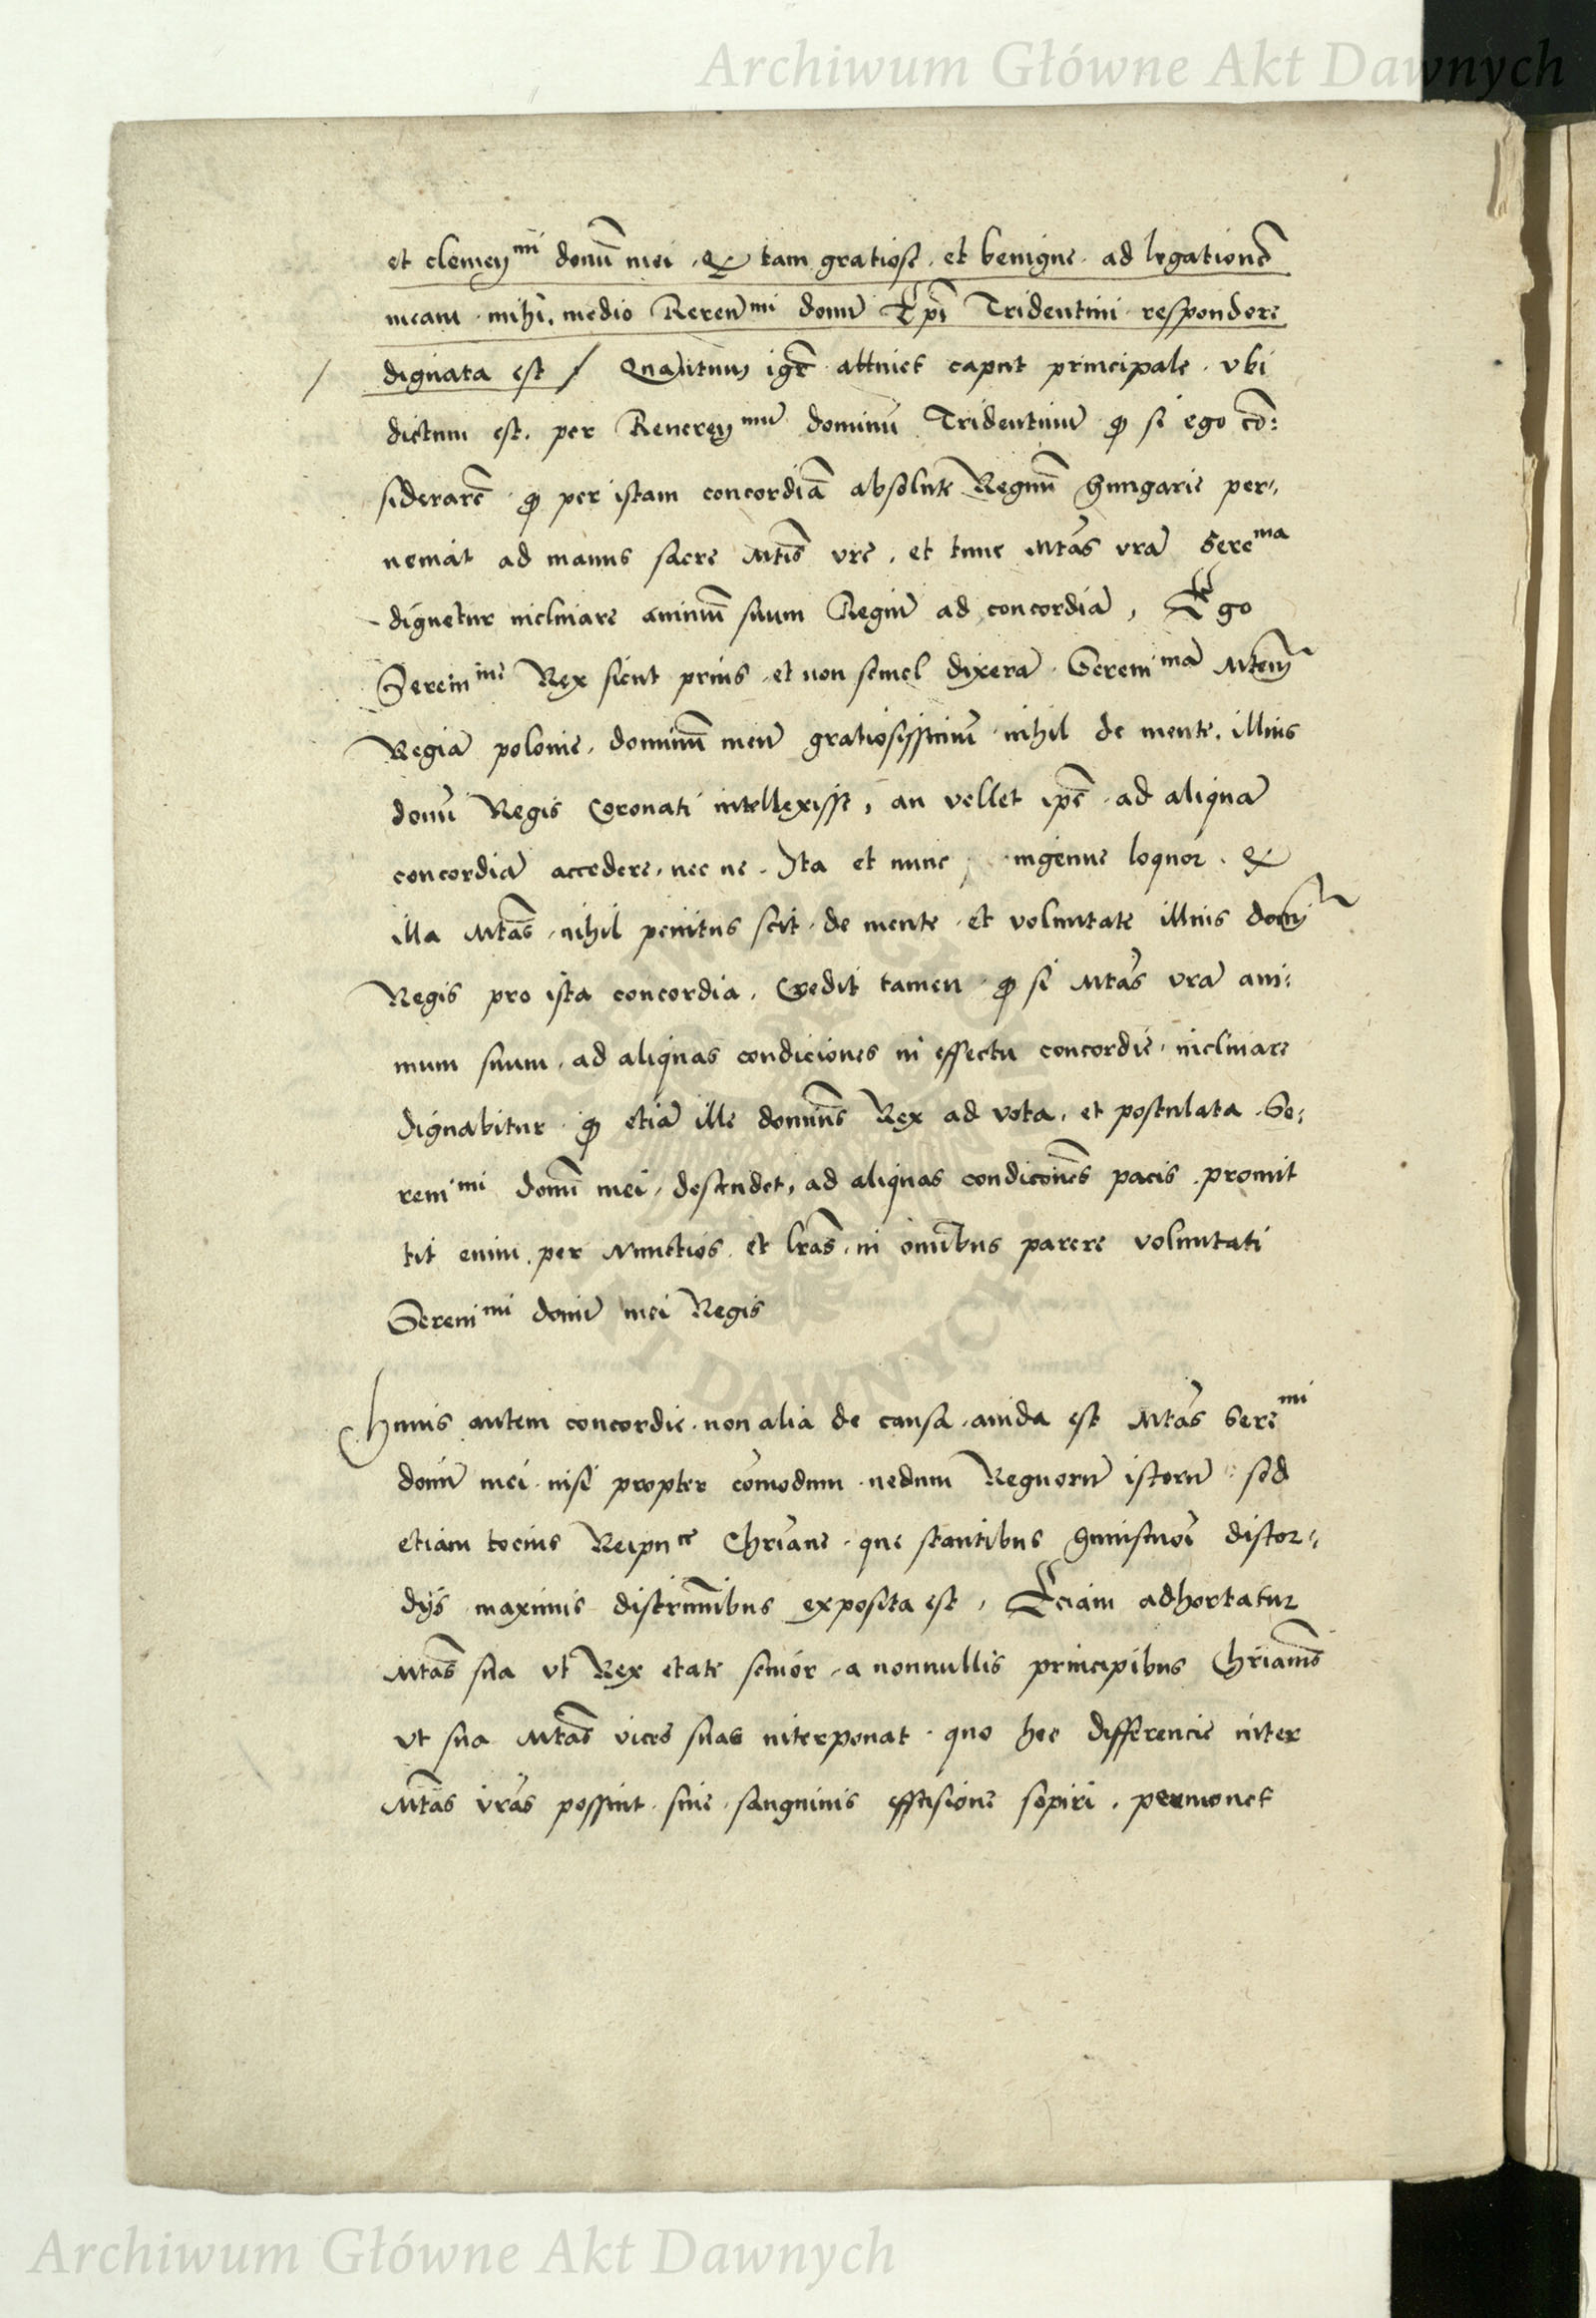 Archiwum Główne Akt Dawnych
et clemen^mi domi mei, qz tam gratiose, et benigne, ad legatione
meam mihi, medio Reren^mi domi Epi Tridentini respondere
dignata est / Quantum igr attinet caput principale, vbi
dictum est, per Reueren^mu dominu Tridentinu qz si ego co:
siderare qz per istam concordia absolute Regnu Hungarie per,,
ueniat ad manus sacre Mtis vre, et tunc Mtas vra Sere^ma
dignetur inclinare animu suum Regiu ad concordia, Ego
Seren^me Rex sicut prius, et non semel dixera Sereni^ma Mtem
Regia polonie, dominu meu gratiosissimu nihil de mente, illius
domi Regis Coronati intellexisse, an vellet ipse ad aliqua
concordia accedere, nec ne. Ita et nunc, ingenue loquor, qz
illa Mtas, nihil penitus scit, de mente, et voluntate illius domi
Regis pro ista concordia, Credit tamen qz si Mtas vra ani:
mum suum, ad aliquas condiciones in effectu concordie, inclinare
dignabitur qz etia ille dominus Rex ad vota, et postulata Se:
reni^mi domi mei, descendet, ad aliquas condicones pacis, promit
tit enim, per Nunctios et lras, in omibus parere voluntati
Sereni^mi domi mei Regis
Huius autem concordie, non alia de causa, auida est Mtas Sere^mi
domi mei nisi propter comodum nedum Regnoru istoru sed
etiam tocius Reipu^ce Chriane, que stantibus huiusmoi discor,,
dijs maximis discriminibus exposita est, Eciam adhortatur
Mtas sua vt Rex etate senior, a nonnullis principibus Chrianis
vt sua Mtas vices suas interponat, quo hec differencie inter
Mtas vras possint, sine, sanguinis effusione sopiri, permonet
Archiwum Główne Akt Dawnych